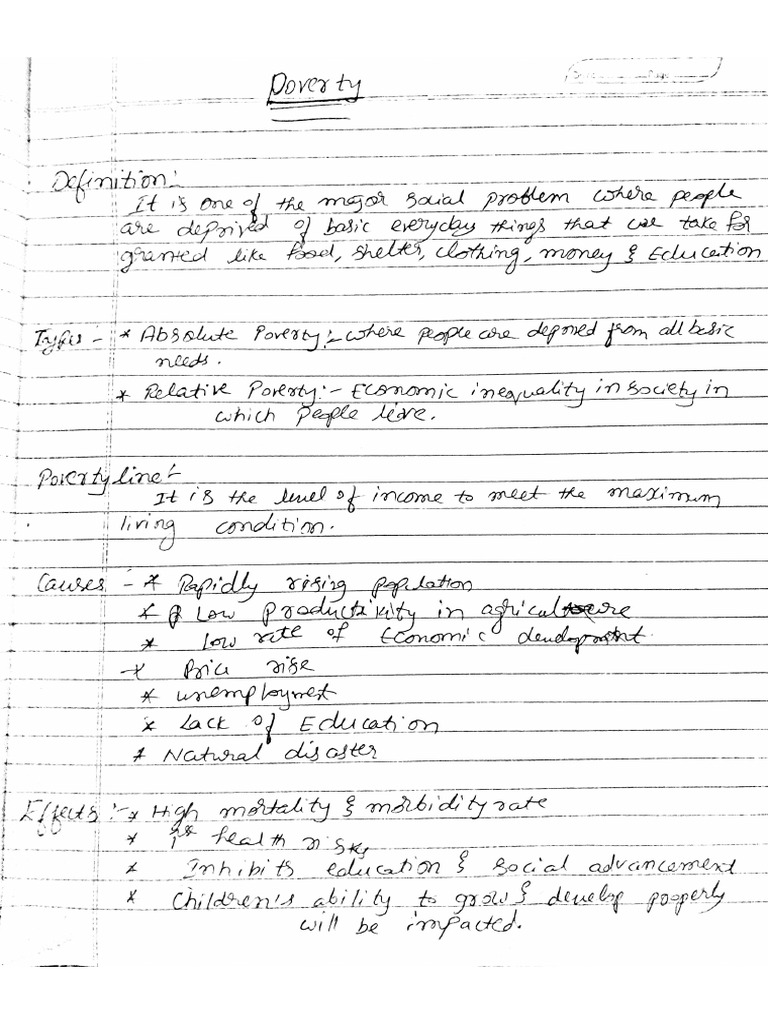 Poverty
Definition:-
It is one of the major social problem where people
are deprived of basic everyday things that we take for
granted like food, shelter, clothing, money & Education
Types - * Absolute Poverty:- where people are deprived from all basic
needs.
* Relative Poverty:- Economic inequality in society in
which people live.
Poverty line:-
It is the level of income to meet the maximum
living condition.
Causes - * Rapidly rising population
* Low productivity in agriculture
* low rate of Economic development.
* Price rise
* unemployment
* Lack of Education
* Natural disaster
Effects:- * High mortality & morbidity rate
* health risks
* Inhibits education & social advancement
* Children's ability to grow & develop properly
will be impacted.